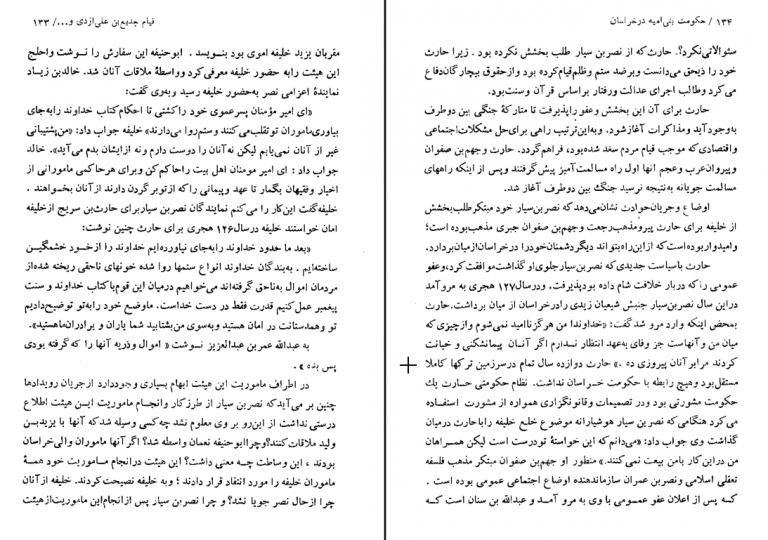 قیام جدیع‌بن علی ازدی و.../ ۱۳۳
مقربان یزید خلیفه اموی بود بنویسد . ابوحنیفه این سفارش را نوشت واحلج
این هیئت رابه حضور خلیفه معرفی کرد وواسطهٔ ملاقات آنان شد. خالدبن زیاد
نمایندهٔ اعزامی نصر به‌حضور خلیفه رسید وبه‌وی گفت:
«ای امیر مؤمنان پسرعموی خود راکشتی تا احکام کتاب خداوند رابه‌جای
بیاوری‌ماموران توتقلب‌می‌کنند وستم‌روا می‌دارند» خلیفه جواب داد: «من‌پشتیبانی
غیر از آنان نمی‌یابم لیکن نه‌آنان را دوست دارم ونه ازایشان بدم می‌آید». خالد
جواب داد : ای امیر مومنان اهل بیت راحاکم‌کن وبرای هرحاکمی مامورانی از
اخیار وفقیهان بگمار تا عهد وپیمانی راکه ازتوبر گردن دارند ازآنان بخـواهند .
خلیفه‌گفت این‌کار را می‌کنم نمایندگان نصربن سیاربرای حارث‌بن سریج ازخلیفه
امان خواستند خلیفه درسال۱۲۶ هجری برای حارث چنین نوشت:
«بعد ما حدود خداوند رابه‌جای نیاورده‌ایم خداوند را ازخـود خشمگین
ساخته‌ایم . به‌بندگان خداوند انواع ستمها روا شده خونهای ناحقی ریخته شده‌از
مردمان اموال به‌ناحق گرفته‌اند می‌خواهیم درمیان این قوم‌باکتاب خداوند و سنت
پیغمبر عمل‌کنیم قدرت فقط در دست خداست. ماوضع خود رابه‌تو توضیح‌دادیم
تو وهمدستانت در امان هستید وبه‌سوی من‌بشتابید شما یاران و برادران‌ماهستید».
به عبدالله عمر بن عبدالعزیز نـوشت « اموال وذریه آنها را که گرفته بودی
پس بده » .
در اطراف ماموریت این هیئت ابهام بسیاری وجوددارد ازجریان رویدادها
چنین بر می‌آیدکه نصربن سیار از طرزکار وانجام ماموریت ایـن هیئت اطلاع
درستی نداشت از این‌رو بر وی معلوم نشد چه‌کسی وسیله شدکه آنها با یزیدبن
ولید ملاقات‌کنند؟وچرا ابوحنیفه نعمان واسطه شد؟ اگر آنها ماموران والی‌خراسان
بودند ، این وساطت چـه معنی داشت؟ این هیئت درانجام مـاموریت خود همـهٔ
ماموران خلیفه را مورد انتقاد قرار دادند ؛ وبه خلیفه نصیحت‌کردند. خلیفه ازآنان
چرا ازحال نصر جویا نشد؟ و چرا نصربن سیار پس ازانجام‌این ماموریت‌ازهیئت
۱۳۴ / حکومت بنی‌امیه درخراسان
سئوالاتی‌نکرد؟. حارث‌که از نصربن سیار طلب بخشش نکرده بود . زیرا حارث
خود را ذیحق می‌دانست وبرضد ستم وظلم‌قیام‌کرده بود وازحقوق بیچارگان‌دفاع
می‌کرد وطالب اجرای عدالت ورفتار براساس قرآن وسنت‌بود.
حارث برای آن این بخشش وعفو راپذیرفت تا متارکهٔ جنگی بین دوطرف
به‌وجودآید ومذاکرات آغازشود. وبه‌این‌ترتیب راهی برای‌حل مشکلات‌اجتماعی
واقتصادی‌که موجب قیام مردم سغد شده‌بود، فراهم‌گردد. حارث وجهم‌بن صفوان
وپیروان‌عرب وعجم آنها اول راه مسالمت‌آمیز پیش‌گرفتند وپس از اینکه راههای
مسالمت جویانه به‌نتیجه نرسید جنگ بین دوطرف آغاز شد.
اوضاع وجریان‌حوادث نشان‌می‌دهدکه نصربن‌سیار خود مبتکرطلب‌بخشش
از خلیفه برای حارث پیرومذهب‌رجعت وجهم‌بن صفوان جبری مذهب‌بوده است؛
وامیدواربوده‌است که ازاین‌راه‌بتواند دیگردشمنان‌خودرا درخراسان‌ازمیان‌بردارد.
حارث باسیاست جدیدی‌که نصربن‌سیارجلوی‌او گذاشت‌موافقت‌کرد،وعفو
عمومی راکه درباره خلافت شام داده بودپذیرفت. ودرسال۱۲۷ هجری به مروآمد
دراین سال نصربن‌سیار جنبش شیعیان زیدی رادرخراسان از میان برداشت.حارث
بمحض اینکه وارد مرو شد گفت: «خداوندا من هرگزناامید نمی‌شوم وازچیزی‌که
میان من وآنهاست جز وفای به‌عهد انتظار نـدارم اگر آنـان پیمانشکنی و خیانت
کردند مرابرآنان پیروزی ده .» حارث دوازده سال تمام درسرزمین ترکها کاملا
مستقل‌بود وهیچ رابطه با حکومت خـراسان نداشت. نظام حکومتی حـارث یك
حکومت مشورتی بود ودر تصمیمات وقانونگزاری همواره از مشورت استفـاده
می‌کرد هنگامی‌که نصربن سیار هوشیارانه موضوع خلع خلیفه راباحارث درمیان
گذاشت وی جواب داد: «می‌دانم‌که این خواستهٔ تودرست است لیکن همـراهان
من دراین‌کار بامن بیعت نمی‌کنند.» منظور او جهم‌بن صفوان مبتکر مذهب فلسفه
تعقلی اسلامی ونصربن عمران سازماندهنده اوضاع اجتماعی عمومی بوده است .
کـه پس از اعلان عفو عمـومی با وی به مرو آمـد و عبدالله بن سنان است کـه